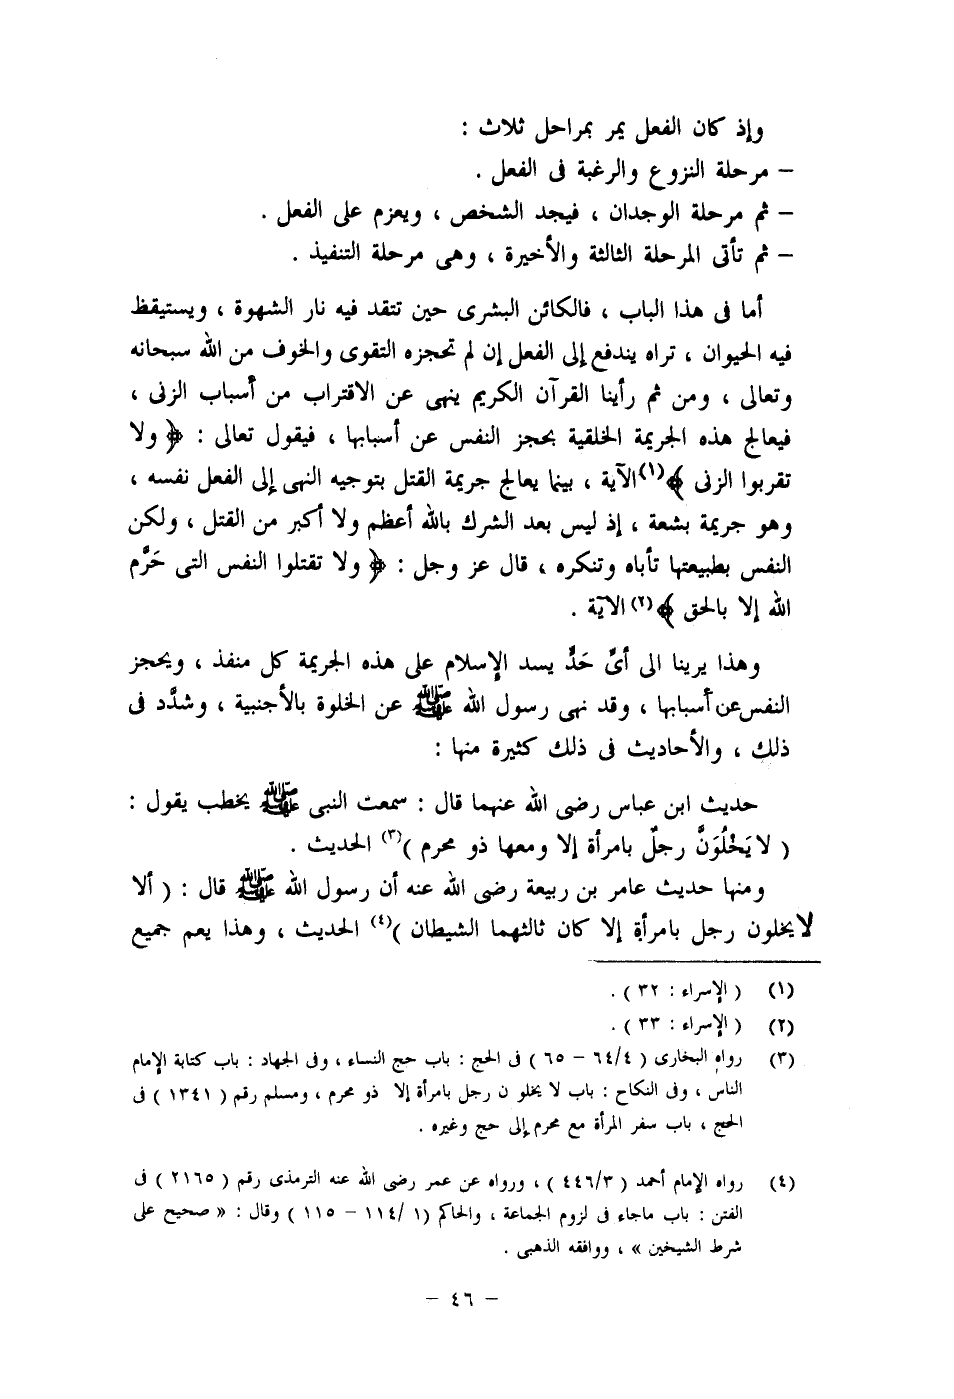 وإذ كان الفعل يمر بمراحل ثلاث :
– مرحلة النزوع والرغبة فى الفعل .
– ثم مرحلة الوجدان ، فيجد الشخص ، ويعزم على الفعل .
– ثم تأتى المرحلة الثالثة والأخيرة ، وهى مرحلة التنفيذ .
أما فى هذا الباب ، فالكائن البشرى حين تتقد فيه نار الشهوة ، ويستيقظ
فيه الحيوان ، تراه يندفع إلى الفعل إن لم تحجزه التقوى والخوف من الله سبحانه
وتعالى ، ومن ثم رأينا القرآن الكريم ينهى عن الاقتراب من أسباب الزنى ،
فيعالج هذه الجريمة الخلقية بحجز النفس عن أسبابها ، فيقول تعالى : ﴿ ولا
تقربوا الزنى ﴾(١) الآية ، بينما يعالج جريمة القتل بتوجيه النهى إلى الفعل نفسه ،
وهو جريمة بشعة ، إذ ليس بعد الشرك بالله أعظم ولا أكبر من القتل ، ولكن
النفس بطبيعتها تأباه وتنكره ، قال عز وجل : ﴿ ولا تقتلوا النفس التى حَرَّم
الله إلا بالحق ﴾(٢) الآية .
وهذا يرينا الى أىِّ حَدٍّ يسد الإسلام على هذه الجريمة كل منفذ ، ويحجز
النفس عن أسبابها ، وقد نهى رسول الله ﷺ عن الخلوة بالأجنبية ، وشدَّد فى
ذلك ، والأحاديث فى ذلك كثيرة منها :
حديث ابن عباس رضى الله عنهما قال : سمعت النبى ﷺ يخطب يقول :
( لا يَخْلُوَنَّ رجلٌ بامرأة إلا ومعها ذو محرم )(٣) الحديث .
ومنها حديث عامر بن ربيعة رضى الله عنه أن رسول الله ﷺ قال : ( ألا
لا يخلون رجل بامرأة إلا كان ثالثهما الشيطان )(٤) الحديث ، وهذا يعم جميع
(١) ( الإسراء : ٣٢ ) .
(٢) ( الإسراء : ٣٣ ) .
(٣) رواه البخارى ( ٦٤/٤ – ٦٥ ) فى الحج : باب حج النساء ، وفى الجهاد : باب كتابة الإمام
الناس ، وفى النكاح : باب لا يخلو ن رجل بامرأة إلا ذو محرم ، ومسلم رقم ( ١٣٤١ ) فى
الحج ، باب سفر المرأة مع محرم إلى حج وغيره .
(٤) رواه الإمام أحمد ( ٤٤٦/٣ ) ، ورواه عن عمر رضى الله عنه الترمذى رقم ( ٢١٦٥ ) فى
الفتن : باب ماجاء فى لزوم الجماعة ، والحاكم (١ /١١٤ – ١١٥ ) وقال : « صحيح على
شرط الشيخين » ، ووافقه الذهبى .
– ٤٦ –